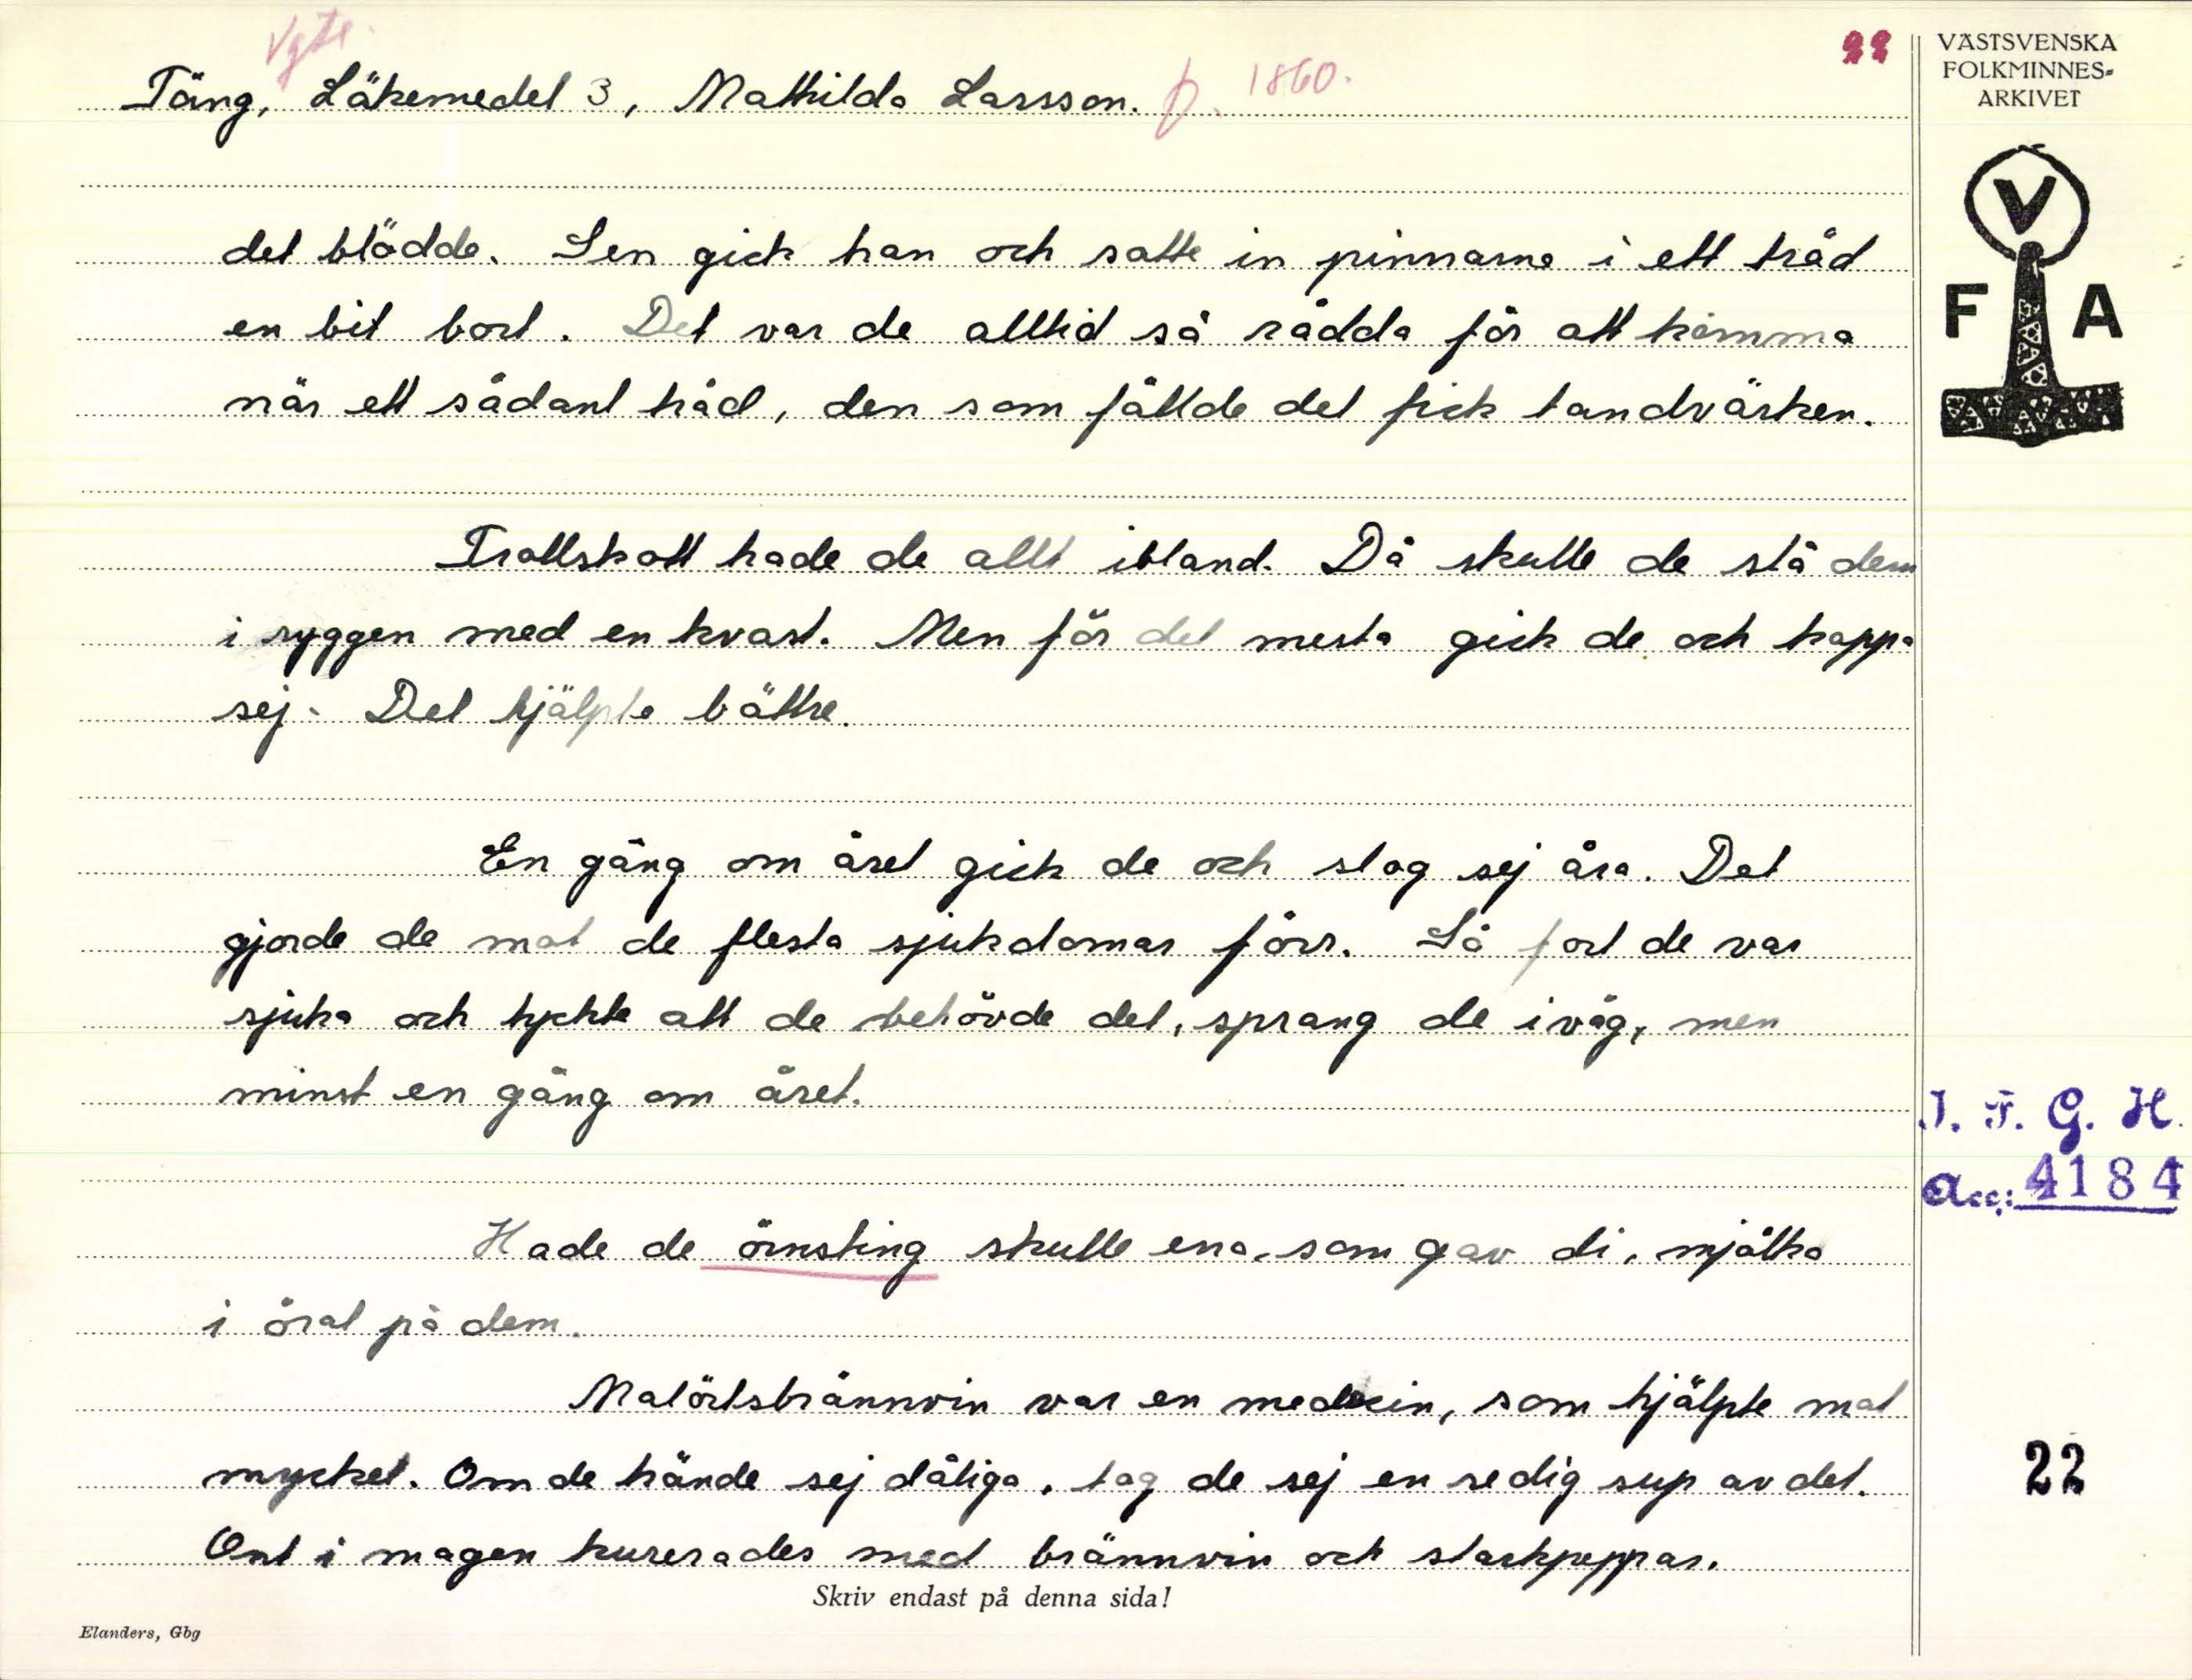 Vgtl.
22
Täng, Läkemedel 3, Mathilda Larsson. f. 1860.
VÄSTSVENSKA
FOLKMINNES-
ARKIVET
V
F A
det blödde. Sen gick han och satte in pinnarne i ett träd
en bit bort. Det var de alltid så rädda för att komma
när ett sådant träd, den som fällde det fick tandvärken.
Trollskott hade de allt ibland. Då skulle de slå dem
i ryggen med en kvast. Men för det mesta gick de och koppa
sej. Det hjälpte bättre.
En gång om året gick de och slog sej åra. Det
gjorde de mot de flesta sjukdomar förr. Så fort de var
sjuka och tyckte att de behövde det, sprang de iväg, men
minst en gång om året.
J. F. G. H.
Acc: 4184
Hade de örnsting skulle ena, som gav di, mjölka
i örat på dem.
Malörtsbrännvin var en medecin, som hjälpte mot
mycket. Om de kände sej dåliga, tog de sej en redig sup av det.
22
Ont i magen kurerades med brännvin och starkpeppar.
Skriv endast på denna sida!
Elanders, Gbg